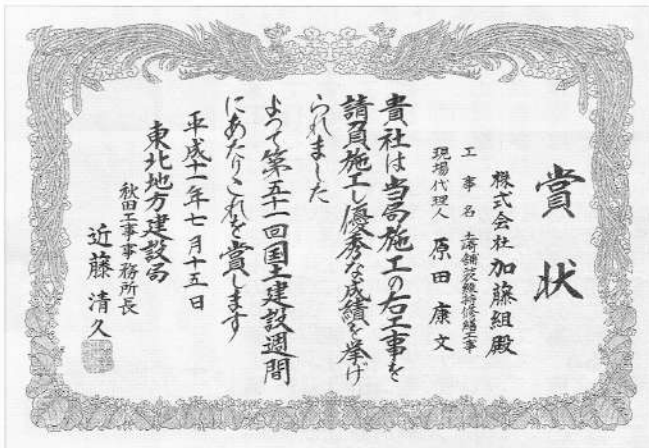 賞状
株式会社 加藤組 殿
工事名 土崎舗装維持修繕工事
現場代理人 原田康文
貴社は当局施工の右工事を
請負施工し優秀な成績を挙げ
られました
よつて第五十一回国土建設週間
にあたりこれを賞します
平成十一年七月十五日
東北地方建設局
秋田工事事務所長
近藤清久